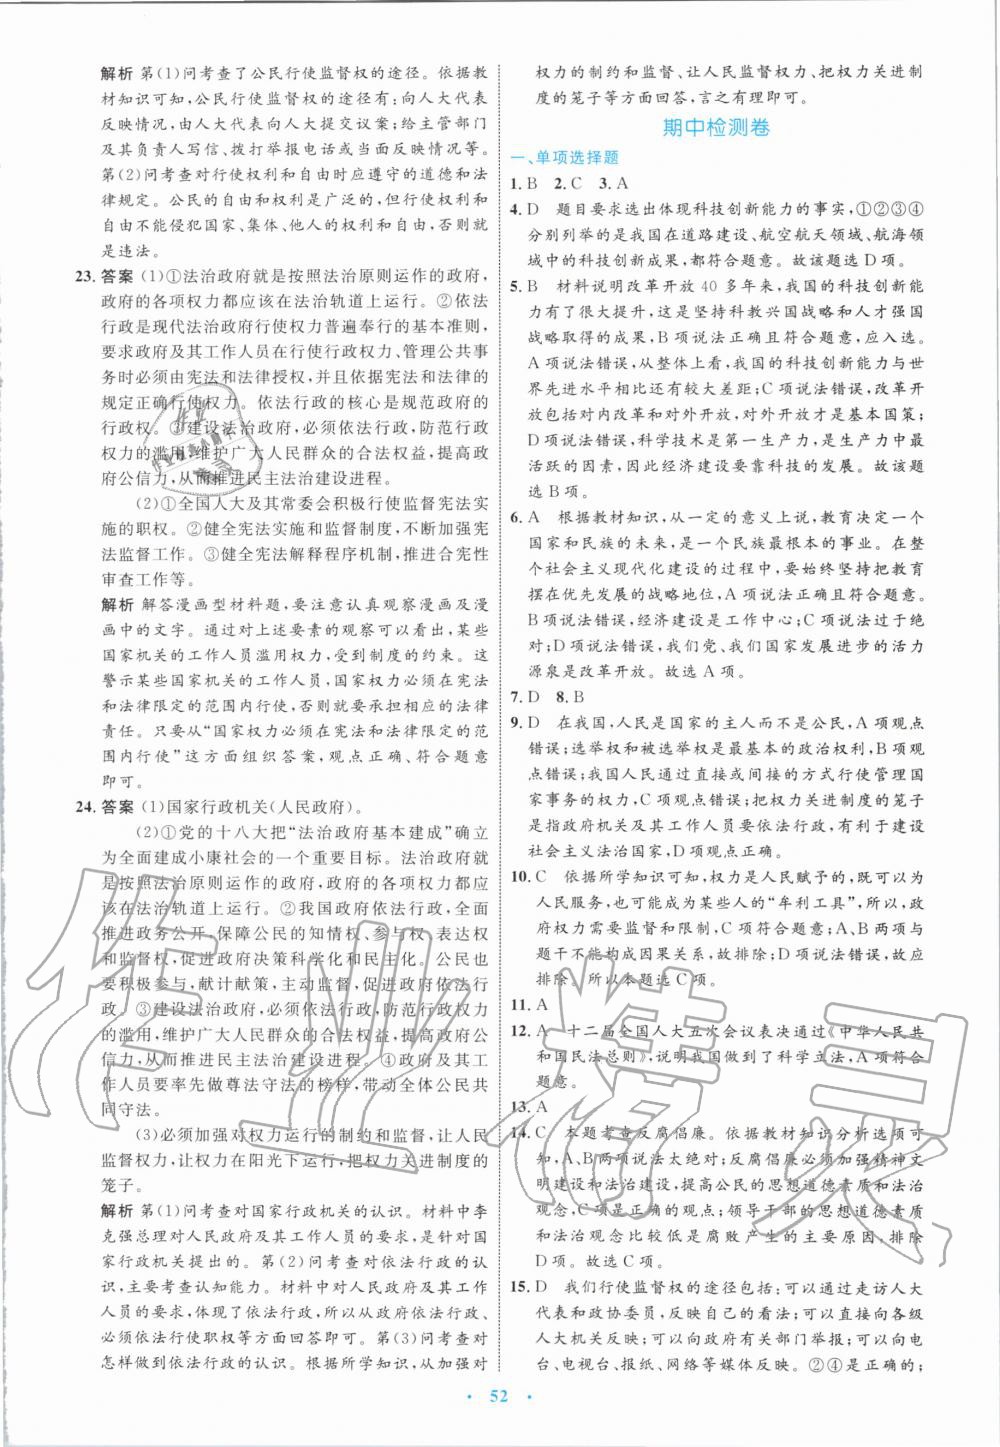 解析 第(1)问考查了公民行使监督权的途径。依据教
材知识可知,公民行使监督权的途径有:向人大代表
反映情况,向人大提交议案;给主管部门
及其负责人写信、拨打举报电话或当面反映情况等。
第(2)问考查对行使权利和自由时应遵守的道德和法
律规定。公民的自由和权利是广泛的,但行使权利和
自由不能侵犯国家、集体、他人的权利和自由,否则就
是违法。
23. 答案 (1)①法治政府就是按照法治原则运作的政府,
政府的各项权力都应该在法治轨道上运行。②依法
行政是现代法治政府行使权力普遍奉行的基本准则,
要求政府及其工作人员在行使行政权力、管理公共事
务时必须由宪法和法律授权,并且依据宪法和法律的
规定正确行使权力。依法行政的核心是规范政府的
行政权。③建设法治政府,必须依法行政,防范行政权
力的滥用,维护广大人民群众的合法权益,提高政
府公信力,从而推进民主法治建设进程。
(2)①全国人大及其常委会积极行使监督宪法实
施的职权。②健全宪法实施和监督制度,不断加强宪
法监督工作。③健全宪法解释程序机制,推进合宪性
审查工作等。
解析 解答漫画型材料题,要注意认真观察漫画及漫
画中的文字。通过对上述要素的观察可以看出,某些
国家机关的工作人员滥用权力,受到制度的约束。这
警示某些国家机关的工作人员,国家权力必须在宪法
和法律限定的范围内行使,否则就要承担相应的法律
责任。只要从“国家权力必须在宪法和法律限定的范
围内行使”这方面组织答案,观点正确、符合题意
即可。
24. 答案 (1)国家行政机关(人民政府)。
(2)①党的十八大把“法治政府基本建成”确立
为全面建成小康社会的一个重要目标。法治政府就
是按照法治原则运作的政府,政府的各项权力都应
该在法治轨道上运行。②我国政府依法行政,全面
推进政务公开,保障公民的知情权、参与权、表达权
和监督权,促进政府决策科学化和民主化。公民也
要积极参与,献计献策,主动监督,促进政府依法行
政。③建设法治政府,必须依法行政,防范行政权力
的滥用,维护广大人民群众的合法权益,提高政府公
信力,从而推进民主法治建设进程。④政府及其工
作人员要率先做尊法守法的榜样,带动全体公民共
同守法。
(3)必须加强对权力运行的制约和监督,让人民
监督权力,让权力在阳光下运行,把权力关进制度的
笼子。
解析 第(1)问考查对国家行政机关的认识。材料中李
克强总理对人民政府及其工作人员的要求,是针对国
家行政机关提出的。第(2)问考查对依法行政的认
识,主要考查认知能力。材料中对人民政府及其工作
人员的要求,体现了依法行政,所以从政府依法行政、
必须依法行使职权等方面回答即可。第(3)问考查对
怎样做到依法行政的认识。根据所学知识,从加强对
权力的制约和监督、让人民监督权力、把权力关进制
度的笼子等方面回答,言之有理即可。
期中检测卷
一、单项选择题
1. B 2. C 3. A
4. D 题目要求选出体现科技创新能力的事实,①②③④
分别列举的是我国在道路建设、航空航天领域、航海领
域中的科技创新成果,都符合题意。故该题选D项。
5. B 材料说明改革开放 40 多年来,我国的科技创新能
力有了很大提升,这是坚持科教兴国战略和人才强国
战略取得的成果,B项说法正确且符合题意,应入选。
A项说法错误,从整体上看,我国的科技创新能力与世
界先进水平相比还有较大差距;C项说法错误,改革开
放包括对内改革和对外开放,对外开放才是基本国策;
D项说法错误,科学技术是第一生产力,是生产力中最
活跃的因素,因此经济建设要靠科技的发展。故该题
选B项。
6. A 根据教材知识,从一定的意义上说,教育决定一个
国家和民族的未来,是一个民族最根本的事业。在整
个社会主义现代化建设的过程中,要始终坚持把教育
摆在优先发展的战略地位,A项说法正确且符合题意。
B项说法错误,经济建设是工作中心;C项说法过于绝
对;D项说法错误,我们党、我们国家发展进步的活力
源泉是改革开放。故选A项。
7. D 8. B
9. D 在我国,人民是国家的主人而不是公民,A项观点
错误;选举权和被选举权是最基本的政治权利,B项观
点错误;我国人民通过直接或间接的方式行使管理国
家事务的权力,C项观点错误;把权力关进制度的笼子
是指政府机关及其工作人员要依法行政,有利于建设
社会主义法治国家,D项观点正确。
10. C 依据所学知识可知,权力是人民赋予的,既可以为
人民服务,也可能成为某些人的“牟利工具”,所以,政府
权力需要监督和限制,C项符合题意;A、B两项与
题干不能构成因果关系,故排除;D项说法错误,故应
排除。所以本题选C项。
11. A
12. A 十二届全国人大五次会议表决通过《中华人民共
和国民法总则》,说明我国做到了科学立法,A项符合
题意。
13. A
14. C 本题考查反腐倡廉。依据教材知识分析选项可
知,A、B两项说法太绝对;反腐倡廉必须加强精神文
明建设和法治建设,提高公民的思想道德素质和法治
观念,C项是正确的观点;领导干部的思想道德素质
和法治观念比较低是腐败产生的主要原因,排除
D项。故选C项。
15. D 我们行使监督权的途径包括:可以通过走访人大
代表和政协委员,反映自己的看法;可以直接向各级
人大机关反映;可以向政府有关部门举报;可以向电
台、电视台、报纸、网络等媒体反映。②④是正确的;
52
作业精灵